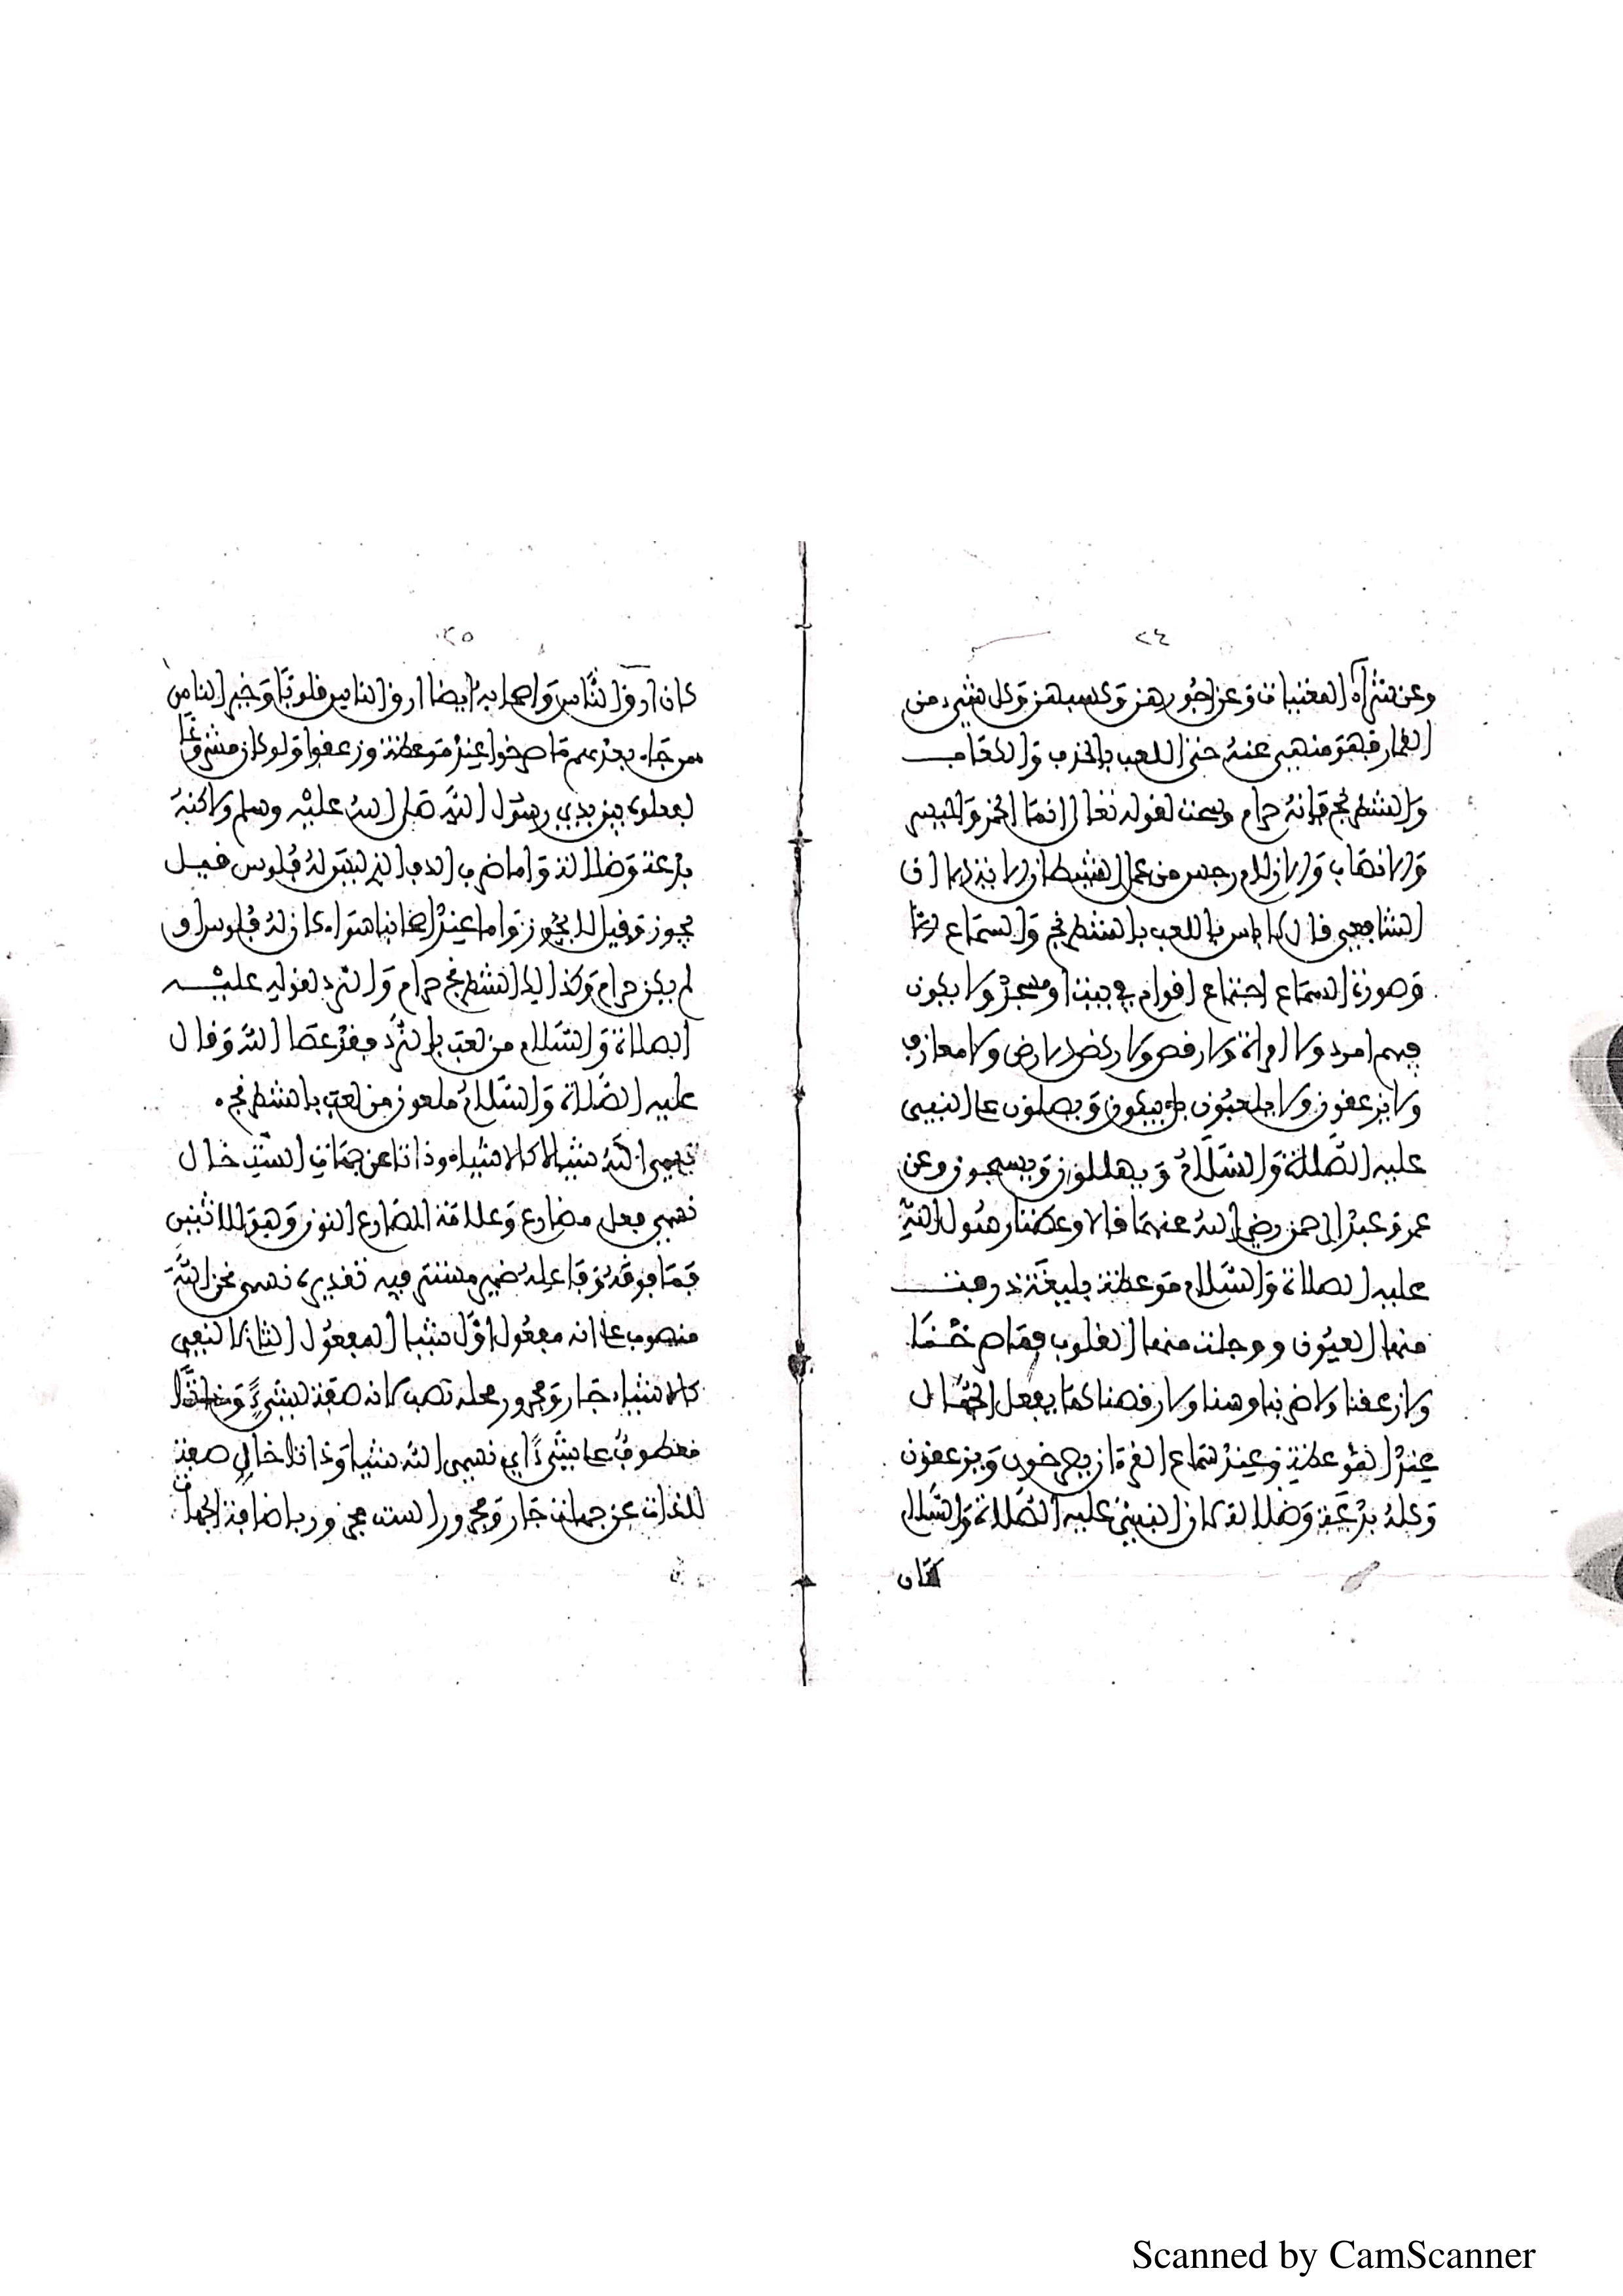 ٢٤
وعن شراء المغنيات وعن اجورهن وكسبهن وكل شيء من
القمار فهو منهي عنه حتى اللعب بالخزب والكعاب
والشطرنج فانه حرام وسحت لقوله تعا انما الخمر والميسر
والانصاب والازلام رجس من عمل الشيطان الا
الشافعي قال لا باس باللعب بالشطرنج والسماع
وصورة السماع اجتماع اقوام في بيت او مسجد ولا يكون
فيهم امرد ولا امراة ولا رقص ولا ركض الارض ولا معازف
ولا يزعفون ولا يلعبون بل يبكون ويصلون عا النبي
عليه الصلاة والسلام ويهللون ويسبحون وعن
عمر وعبد الرحمن رضي الله عنهما قالا وعظنا رسول الله
عليه الصلاة والسلام موعظة بليغة ذرفت
منها العيون ووجلت منها القلوب فما صرخنا
ولا زعفنا ولا ضربنا ولا رقصنا كما يفعل الجهال
عند الموعظة وعند سماع القرءان يصرخون ويزعفون
وكله بدعة وضلالة كان النبي عليه الصلاة والسلام
كان
٢٥
كان ارق الناس واصحابه ايضا ارق الناس قلوبا وخير الناس
ممن جاء بعدهم ما صرخوا عند موعظة وزعفوا ولو كان مشروعا
لفعلوه بين يدي رسول الله صلى الله عليه وسلم ولاكنه
بدعة وضلالة واما ضرب الدف الذي ليس له فلوس فيل
يجوز وقيل لا يجوز واما عند اصحابنا سواء كان له فلوس او
لم يكن حرام وكذالك الشطرنج حرام والنرد لقوله عليه
الصلاة والسلام من لعب بالنرد فقد عصا الله وقال
عليه الصلاة والسلام ملعون من لعب بالشطرنج
نسمي الله شيئا لا كالاشياء وذاتا عن جهات الست خال
نسمي فعل مضارع وعلامة المضارع النون وهو للاثنين
فما فوقه وفاعله ضمير مستتر فيه تقديره نسمى نحن الله
منصوب عا انه مفعول اول شيئا المفعول الثاني لا لنفي
كالاشياء جار ومجرور محله نصب لانه صفة لشيء وذاتا
معطوف عا شيء اي نسمى الله شيئا وذاتا خال صفة
للذات عن جهات جار ومجرور الست مجرور باضافة الجهات
Scanned by CamScanner